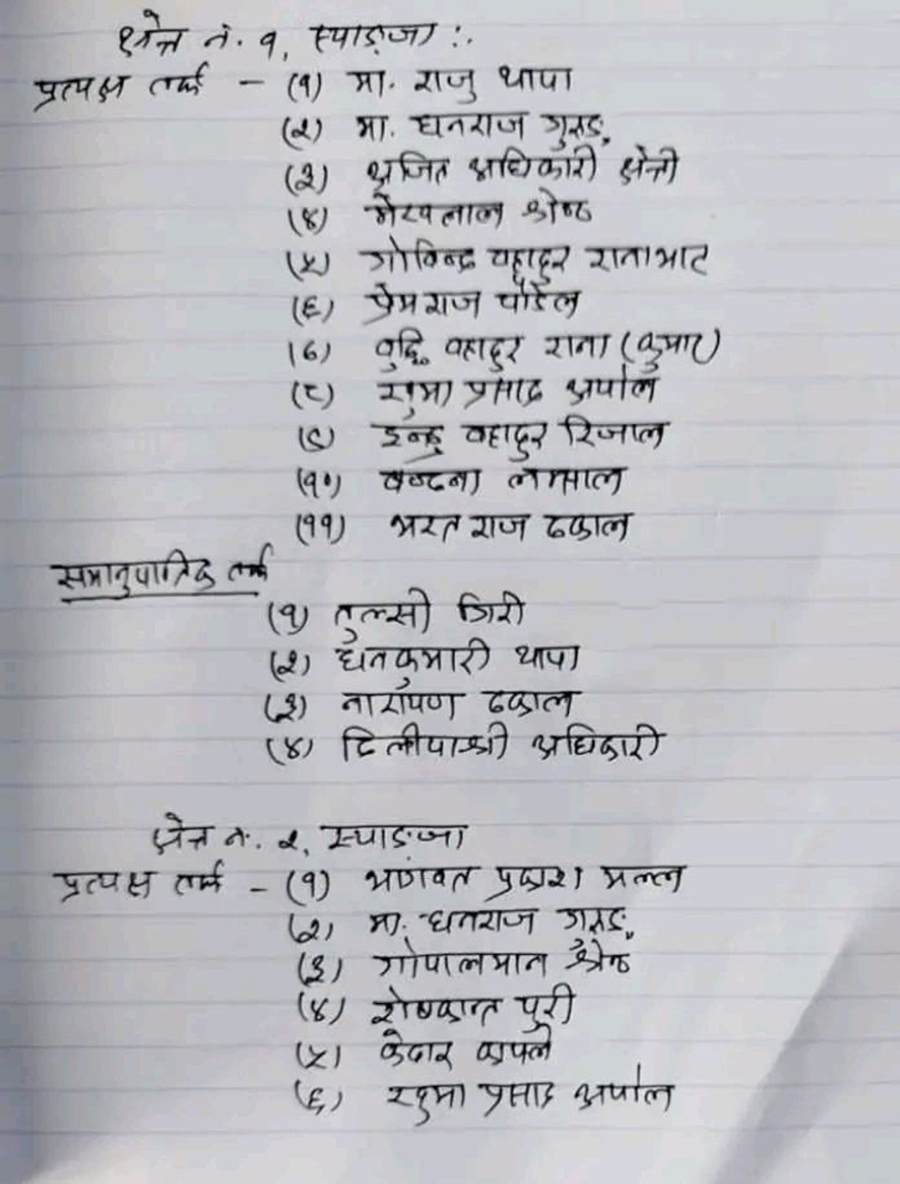 क्षेत्र नं. १, स्याङ्जा :.
प्रत्यक्ष तर्फ - (१) मा. राजु थापा
(२) मा. धनराज गुरुङ,
(३) अजित अधिकारी क्षेत्री
(४) मेखलाल श्रेष्ठ
(५) गोविन्द्र बहादुर रानाभाट
(६) प्रेमराज पौडेल
(७) बुद्धि बहादुर राना (कुमार)
(८) प्रसाद अर्याल
(९) इन्द्र बहादुर रिजाल
(१०) बन्दना लम्साल
(११) भरत राज ढकाल
समानुपातिक तर्फ
(१) तुल्सी गिरी
(२) धनकुमारी थापा
(३) नारायण ढकाल
(४) अधिकारी
क्षेत्र नं. २, स्याङ्जा
प्रत्यक्ष तर्फ - (१) भागवत प्रकाश मल्ल
(२) मा. धनराज गुरुङ,
(३) गोपालमान श्रेष्ठ
(४) शेषकान्त पुरी
(५) केदार काफ्ले
(६) प्रसाद अर्याल